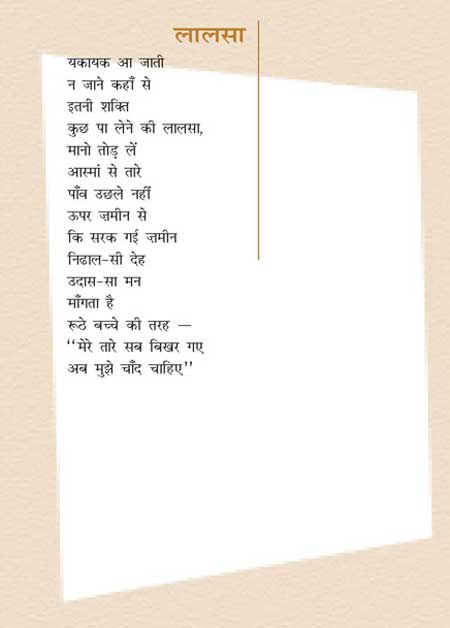 लालसा
यकायक आ जाती
न जाने कहाँ से
इतनी शक्ति
कुछ पा लेने की लालसा,
मानो तोड़ लें
आस्मां से तारे
पाँव उछले नहीं
ऊपर ज़मीन से
कि सरक गई ज़मीन
निढाल-सी देह
उदास-सा मन
माँगता है
रूठे बच्चे की तरह —
‘‘मेरे तारे सब बिखर गए
अब मुझे चाँद चाहिए’’